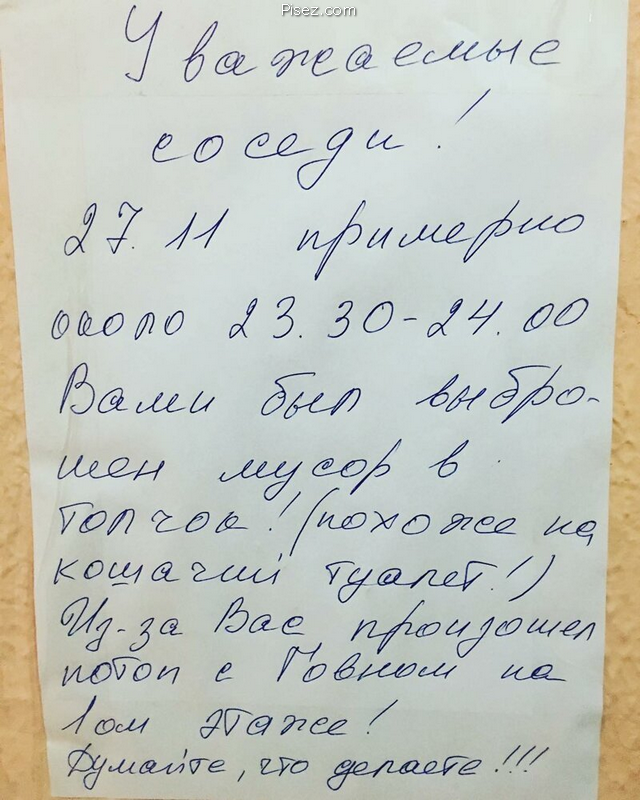 Pisez.com
Уважаемые
соседи!
27.11 примерно
около 23.30-24.00
Вами был выбро-
шен мусор в
толчок! (похоже на
кошачий туалет!)
Из-за Вас произошел
потоп с Говном на
1ом этаже!
Думайте, что делаете!!!